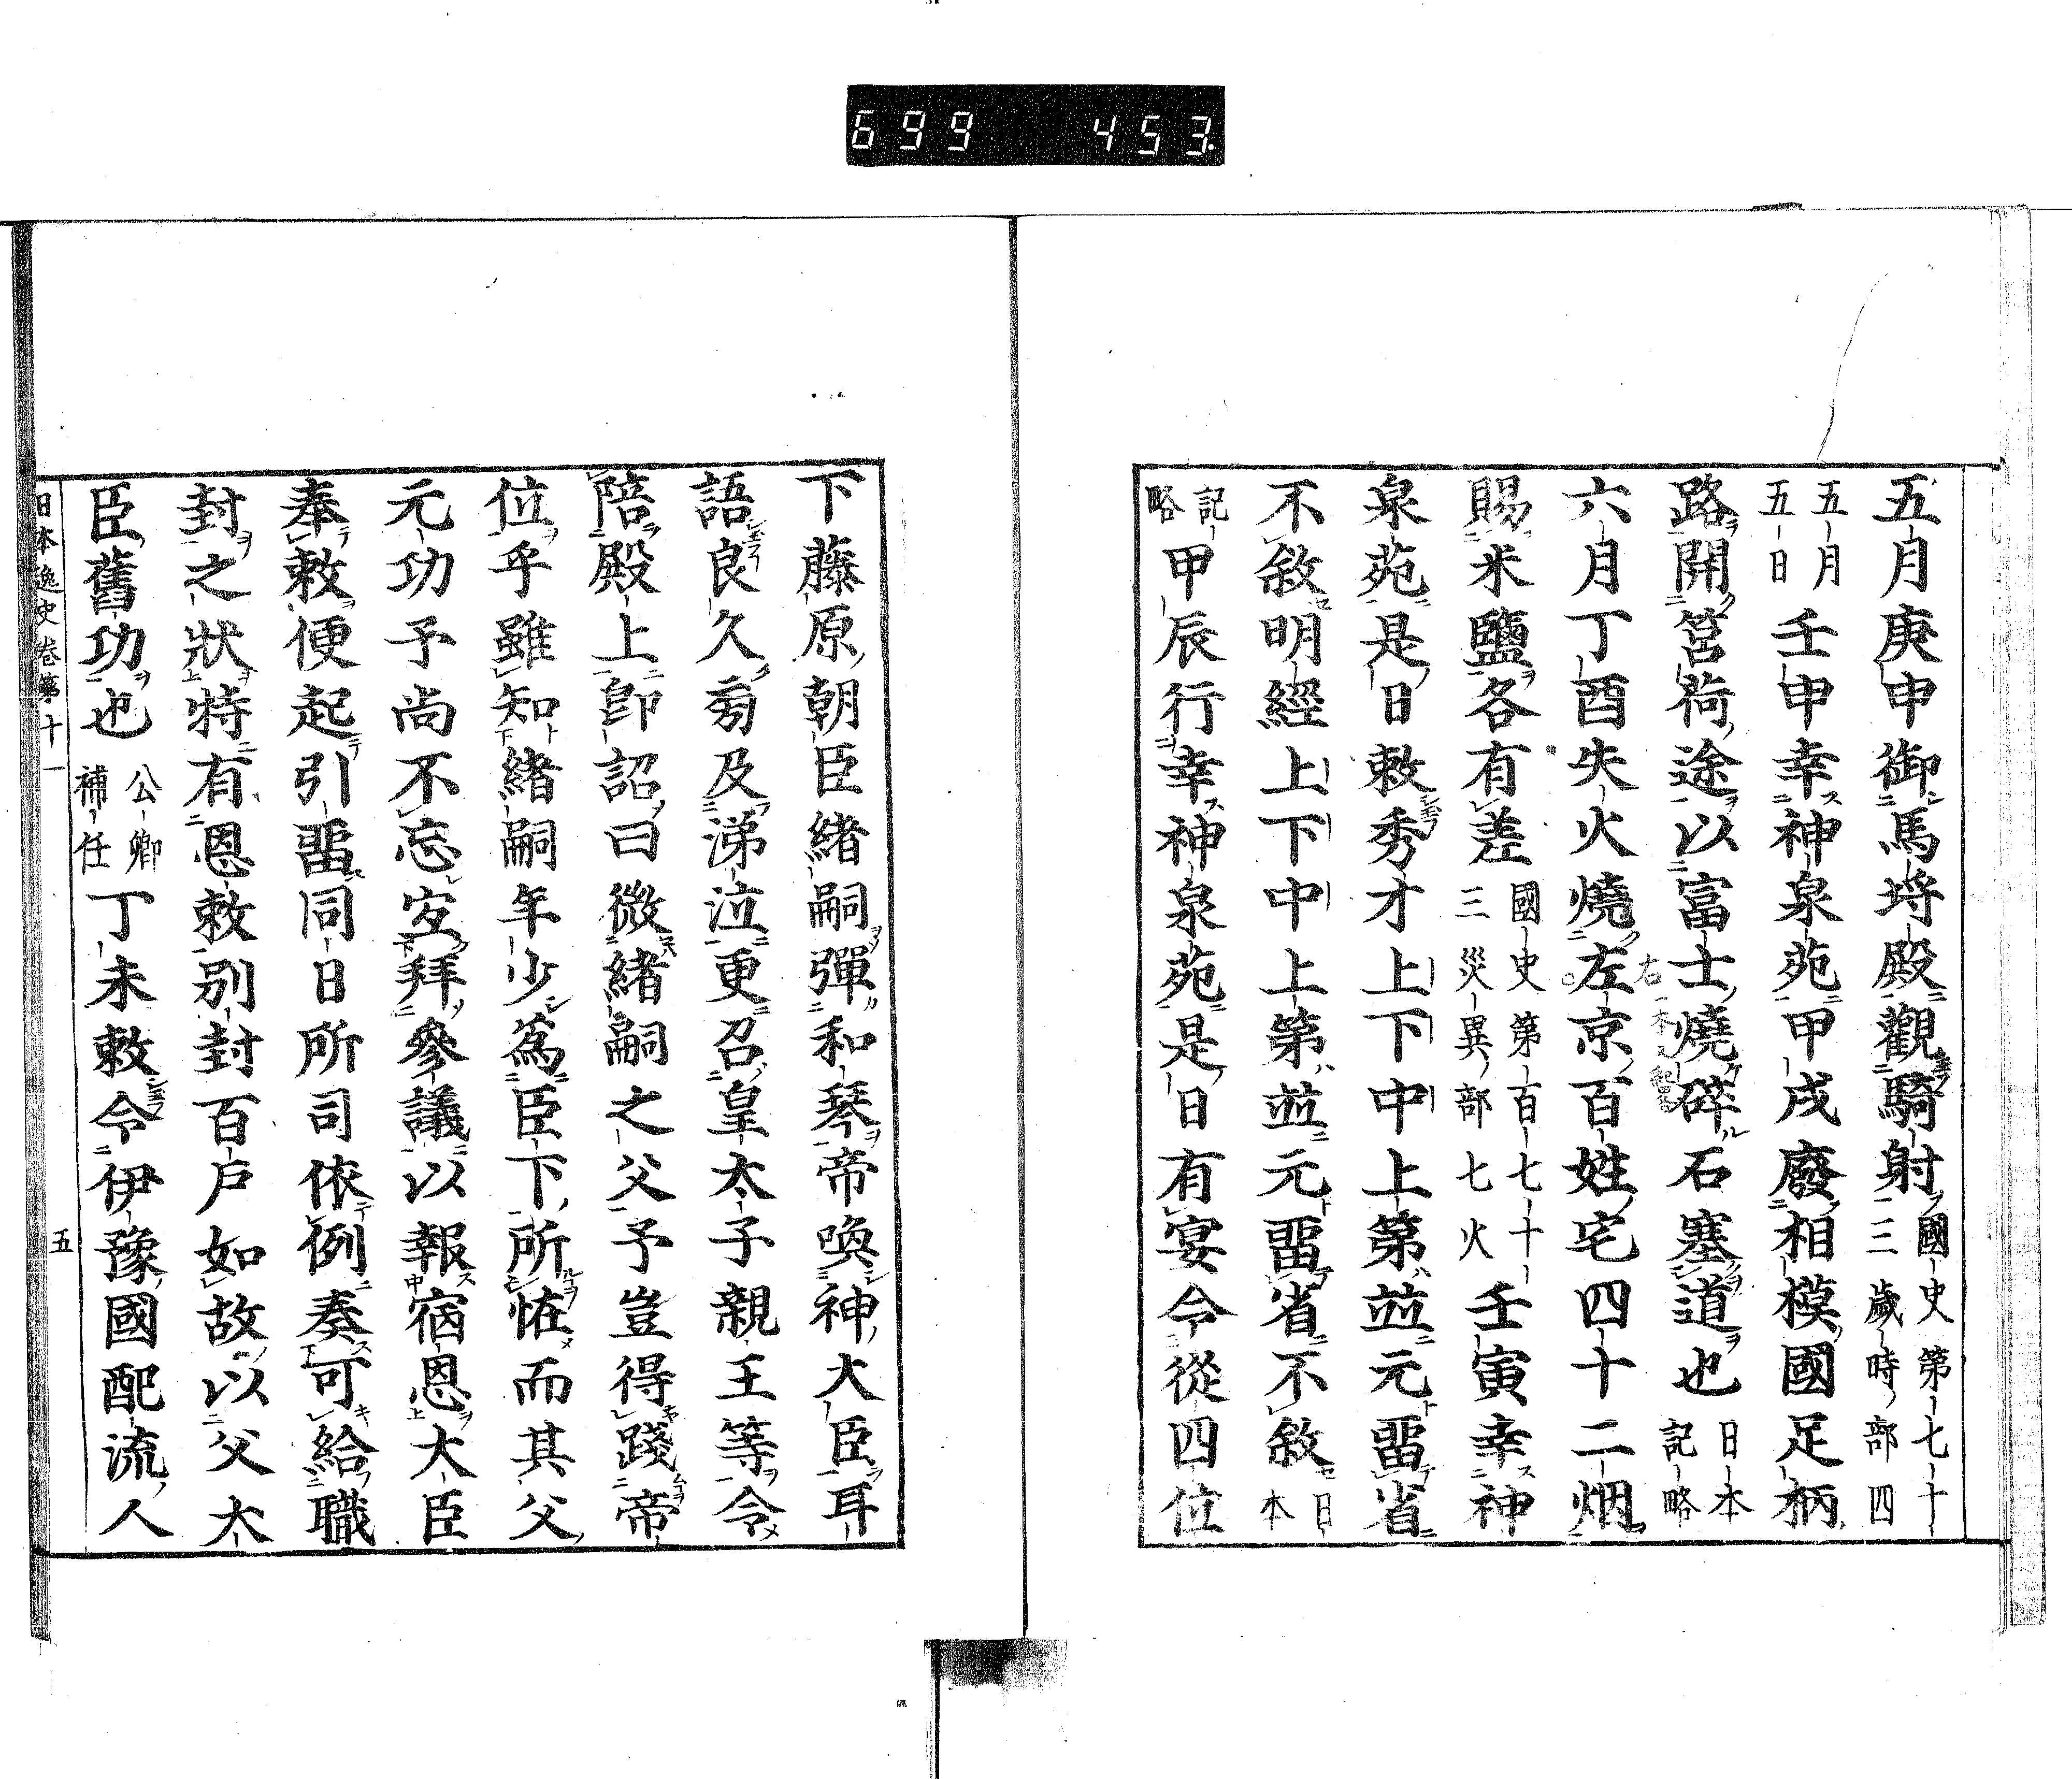 699 453.
五月庚申御馬埓殿觀騎射國史第七十
三歳時部四
五月
五日壬申幸神泉苑甲戌廢相模國足柄
路開筥荷途以富士燒碎石塞道也日本
記略
六月丁酉失火燒左京百姓宅四十二烟
右一本
賜米鹽各有差國史第百七十
三災異部七火壬寅幸神
泉苑是日敕秀才上下中上第並元畱省
不敘明經上下中上第並元畱省不敘日
本
記
略甲辰行幸神泉苑是日有宴令從四位
下藤原朝臣緒嗣彈和琴帝喚神大臣耳
語良久旁及涕泣更召皇太子親王等令
陪殿上卽詔曰微緒嗣之父予豈得踐帝
位乎雖知緒嗣年少爲臣下所恠而其父
元功予尚不忘宜拜參議以報宿恩大臣
奉敕便起引畱同日所司依例奏可給職
封之狀特有恩敕別封百戶如故以父太
臣舊功也公卿
補任丁未敕令伊豫國配流人
日本逸史卷第十一 五